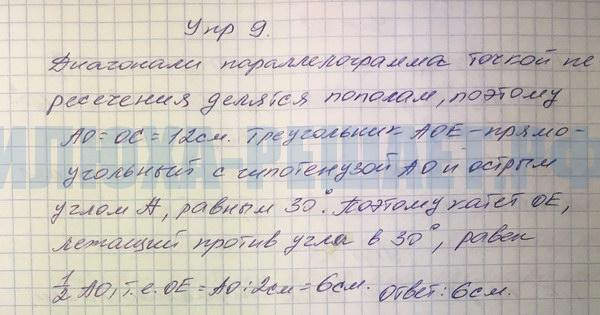 Упр 9.
Диагонали параллелограмма точкой пе
ресечения делятся пополам, поэтому
АО = ОС = 12см. Треугольник АОЕ - прямо-
угольный с гипотенузой АО и острым
углом А, равным 30°. Поэтому катет ОЕ,
лежащий против угла в 30°, равен
1/2 АО, т.е. ОЕ = АО : 2см = 6см. Ответ: 6см.